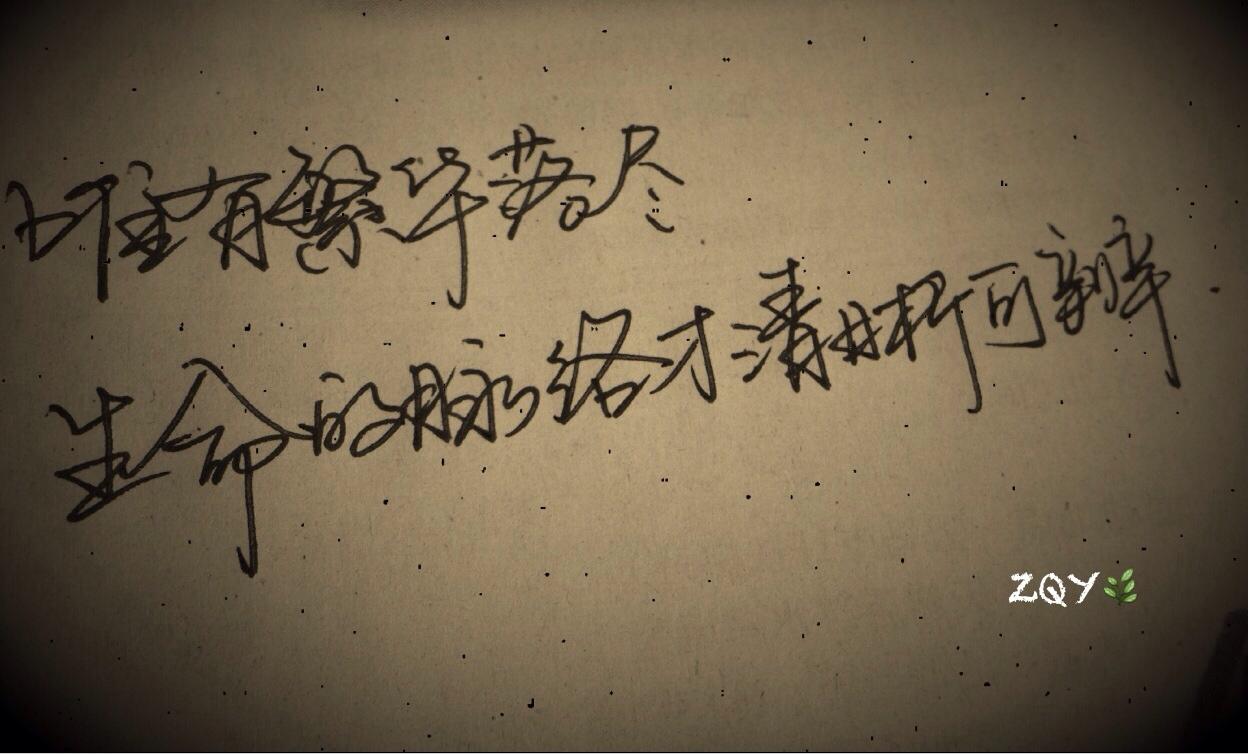 唯有繁华落尽
生命的脉络才清晰可辨.
ZQY